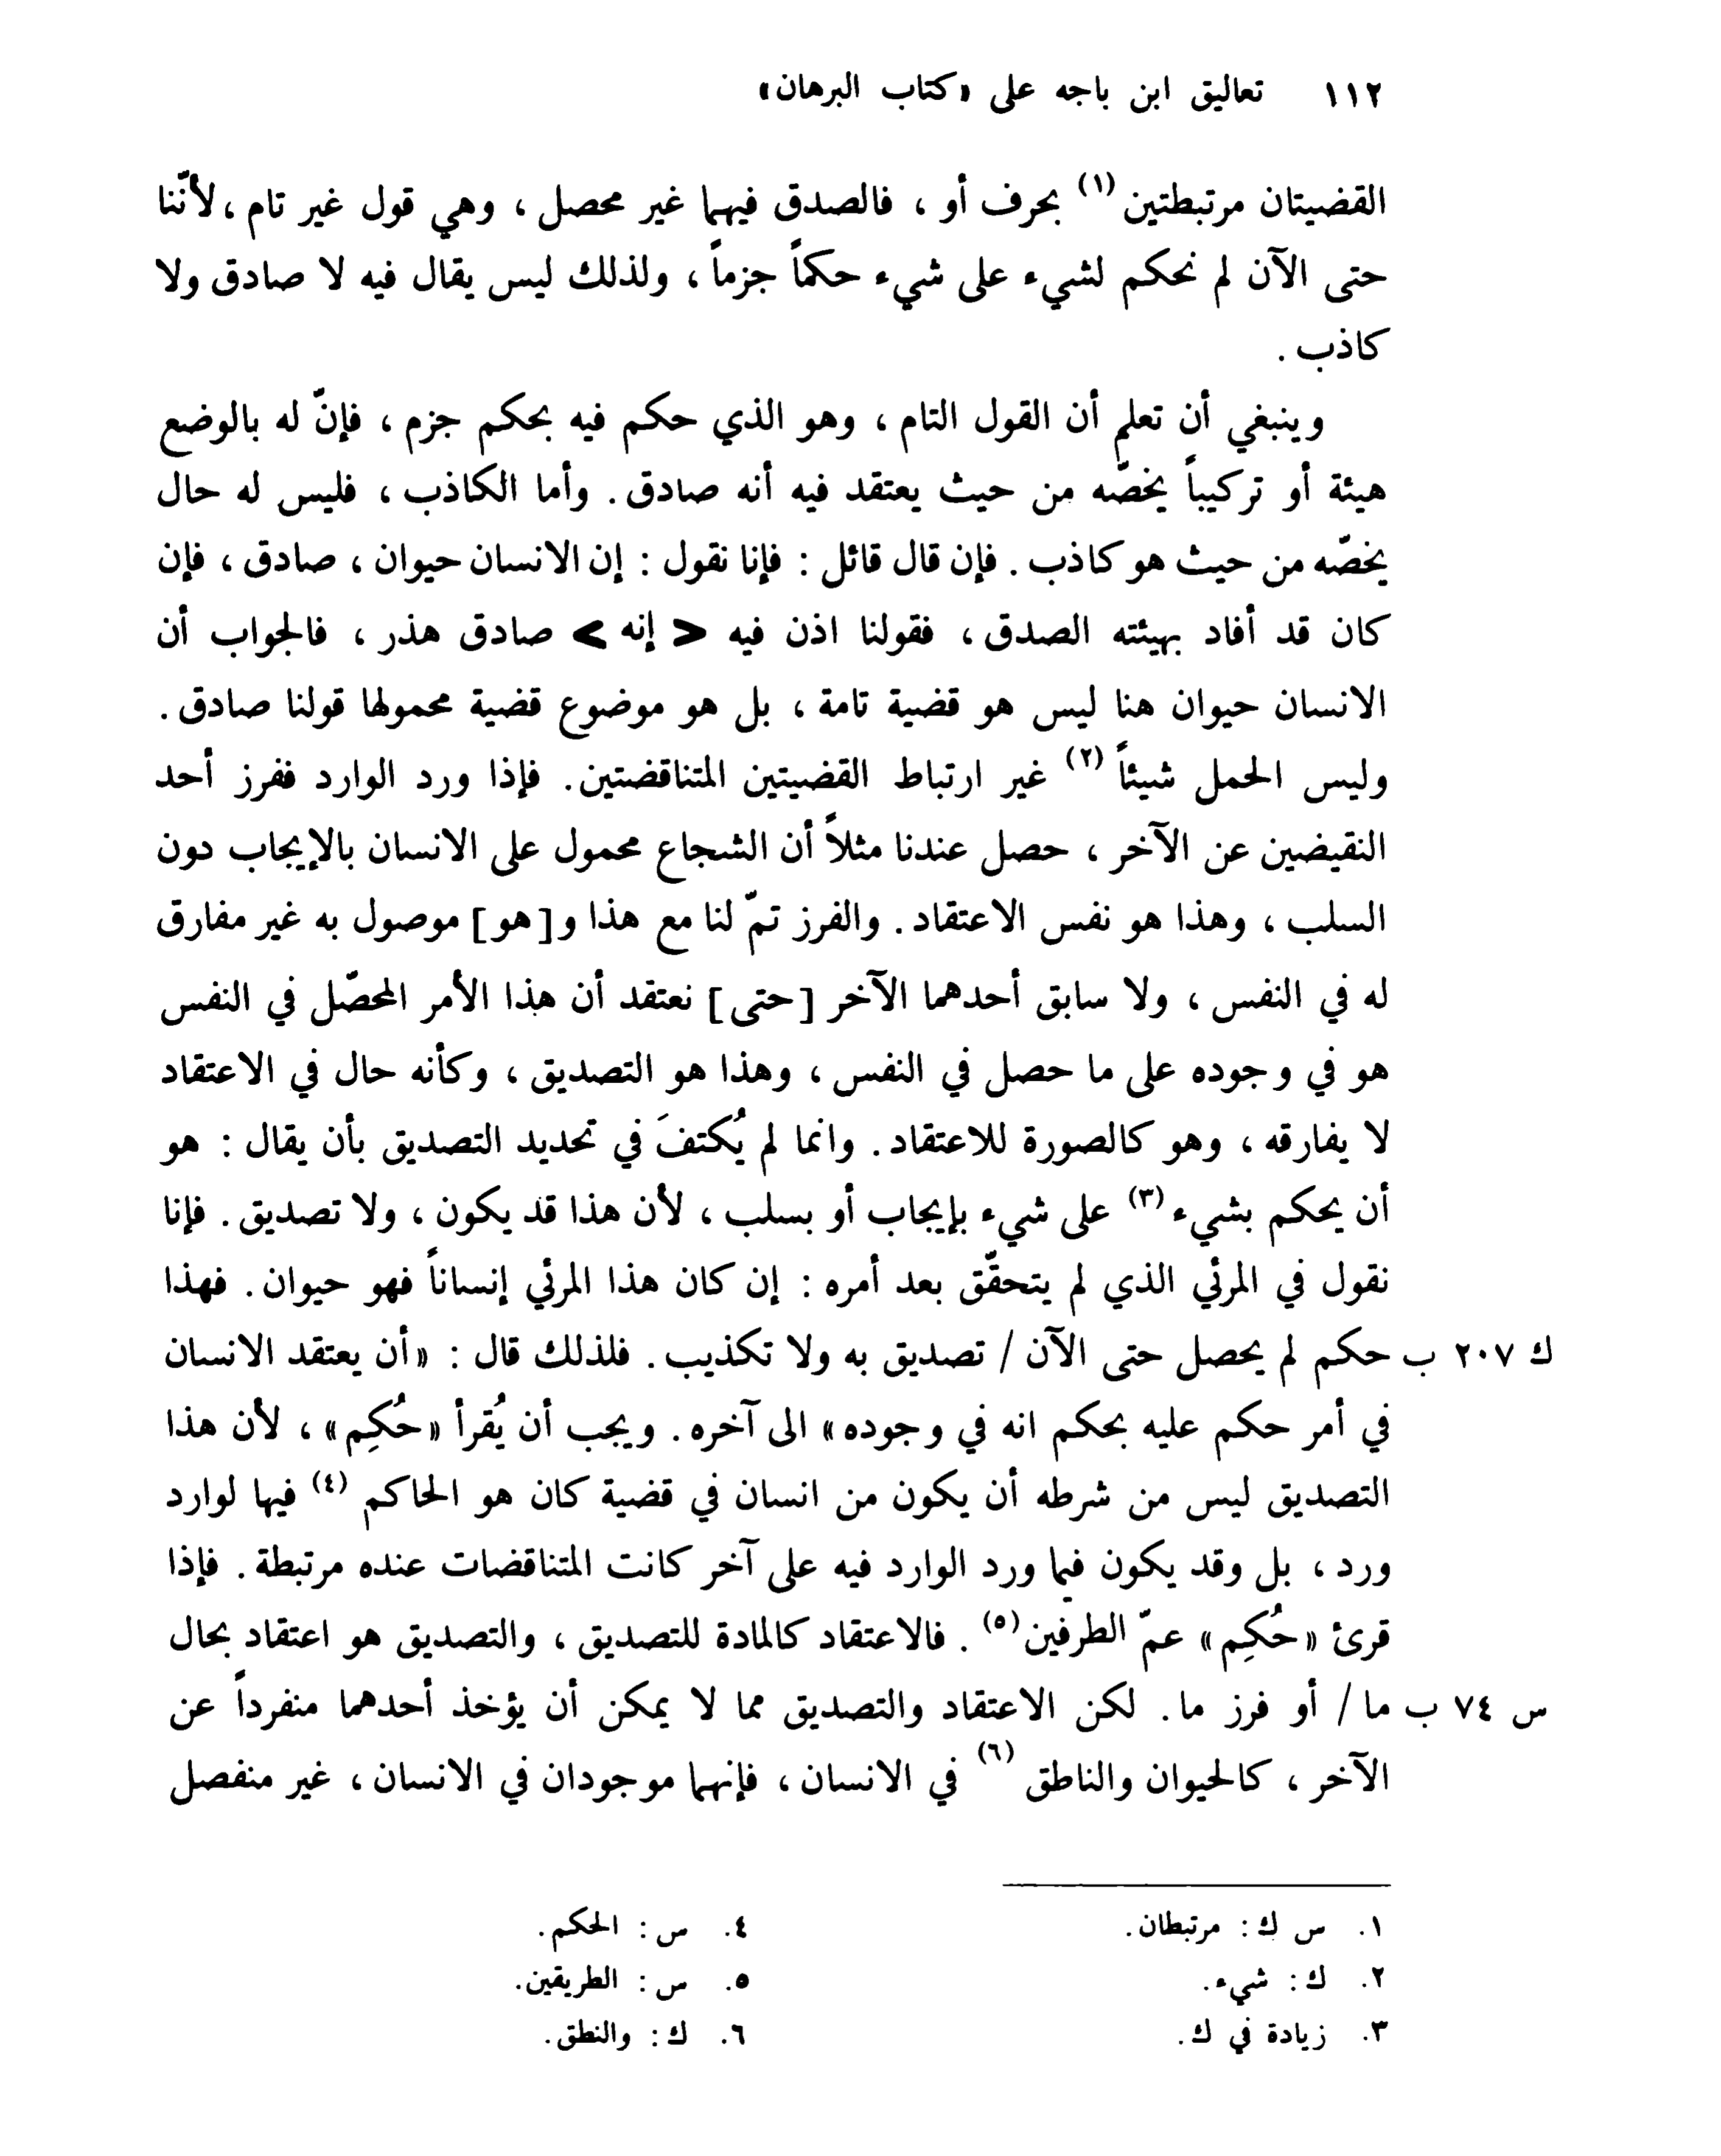 ١١٢ تعاليق ابن باجه على «كتاب البرهان»
القضيتان مرتبطتين (١) بحرف أو ، فالصدق فيهما غير محصل ، وهي قول غير تام ، لأنّنا
حتى الآن لم نحكم لشيء على شيء حكماً جزماً ، ولذلك ليس يقال فيه لا صادق ولا
كاذب .
وينبغي أن تعلم أن القول التام ، وهو الذي حكم فيه بحكم جزم ، فإنّ له بالوضع
هيئة أو تركيباً يخصّه من حيث يعتقد فيه أنه صادق . وأما الكاذب ، فليس له حال
يخصّه من حيث هو كاذب . فإن قال قائل : فإنا نقول : إن الانسان حيوان ، صادق ، فإن
كان قد أفاد بهيئته الصدق ، فقولنا اذن فيه < إنه > صادق هذر ، فالجواب أن
الانسان حيوان هنا ليس هو قضية تامة ، بل هو موضوع قضية محمولها قولنا صادق .
وليس الحمل شيئاً (٢) غير ارتباط القضيتين المتناقضتين . فإذا ورد الوارد ففرز أحد
النقيضين عن الآخر ، حصل عندنا مثلاً أن الشجاع محمول على الانسان بالإيجاب دون
السلب ، وهذا هو نفس الاعتقاد . والفرز تمّ لنا مع هذا و [هو] موصول به غير مفارق
له في النفس ، ولا سابق أحدهما الآخر [حتى] نعتقد أن هذا الأمر المحصّل في النفس
هو في وجوده على ما حصل في النفس ، وهذا هو التصديق ، وكأنه حال في الاعتقاد
لا يفارقه ، وهو كالصورة للاعتقاد . وانما لم يُكتفَ في تحديد التصديق بأن يقال : هو
أن يحكم بشيء (٣) على شيء بإيجاب أو بسلب ، لأن هذا قد يكون ، ولا تصديق . فإنا
نقول في المرئي الذي لم يتحقّق بعد أمره : إن كان هذا المرئي إنساناً فهو حيوان . فهذا
ك ٢٠٧ ب حكم لم يحصل حتى الآن / تصديق به ولا تكذيب . فلذلك قال : «أن يعتقد الانسان
في أمر حكم عليه بحكم انه في وجوده» الى آخره . ويجب أن يُقرأ «حُكِم» ، لأن هذا
التصديق ليس من شرطه أن يكون من انسان في قضية كان هو الحاكم (٤) فيها لوارد
ورد ، بل وقد يكون فيما ورد الوارد فيه على آخر كانت المتناقضات عنده مرتبطة . فإذا
قرئ «حُكِم» عمّ الطرفين (٥) . فالاعتقاد كالمادة للتصديق ، والتصديق هو اعتقاد بحال
س ٧٤ ب ما / أو فرز ما . لكن الاعتقاد والتصديق مما لا يمكن أن يؤخذ أحدهما منفرداً عن
الآخر ، كالحيوان والناطق (٦) في الانسان ، فإنهما موجودان في الانسان ، غير منفصل
١. س ك : مرتبطان.
٢. ك : شيء.
٣. زيادة في ك.
٤. س : الحكم.
٥. س : الطريقين.
٦. ك : والنطق.